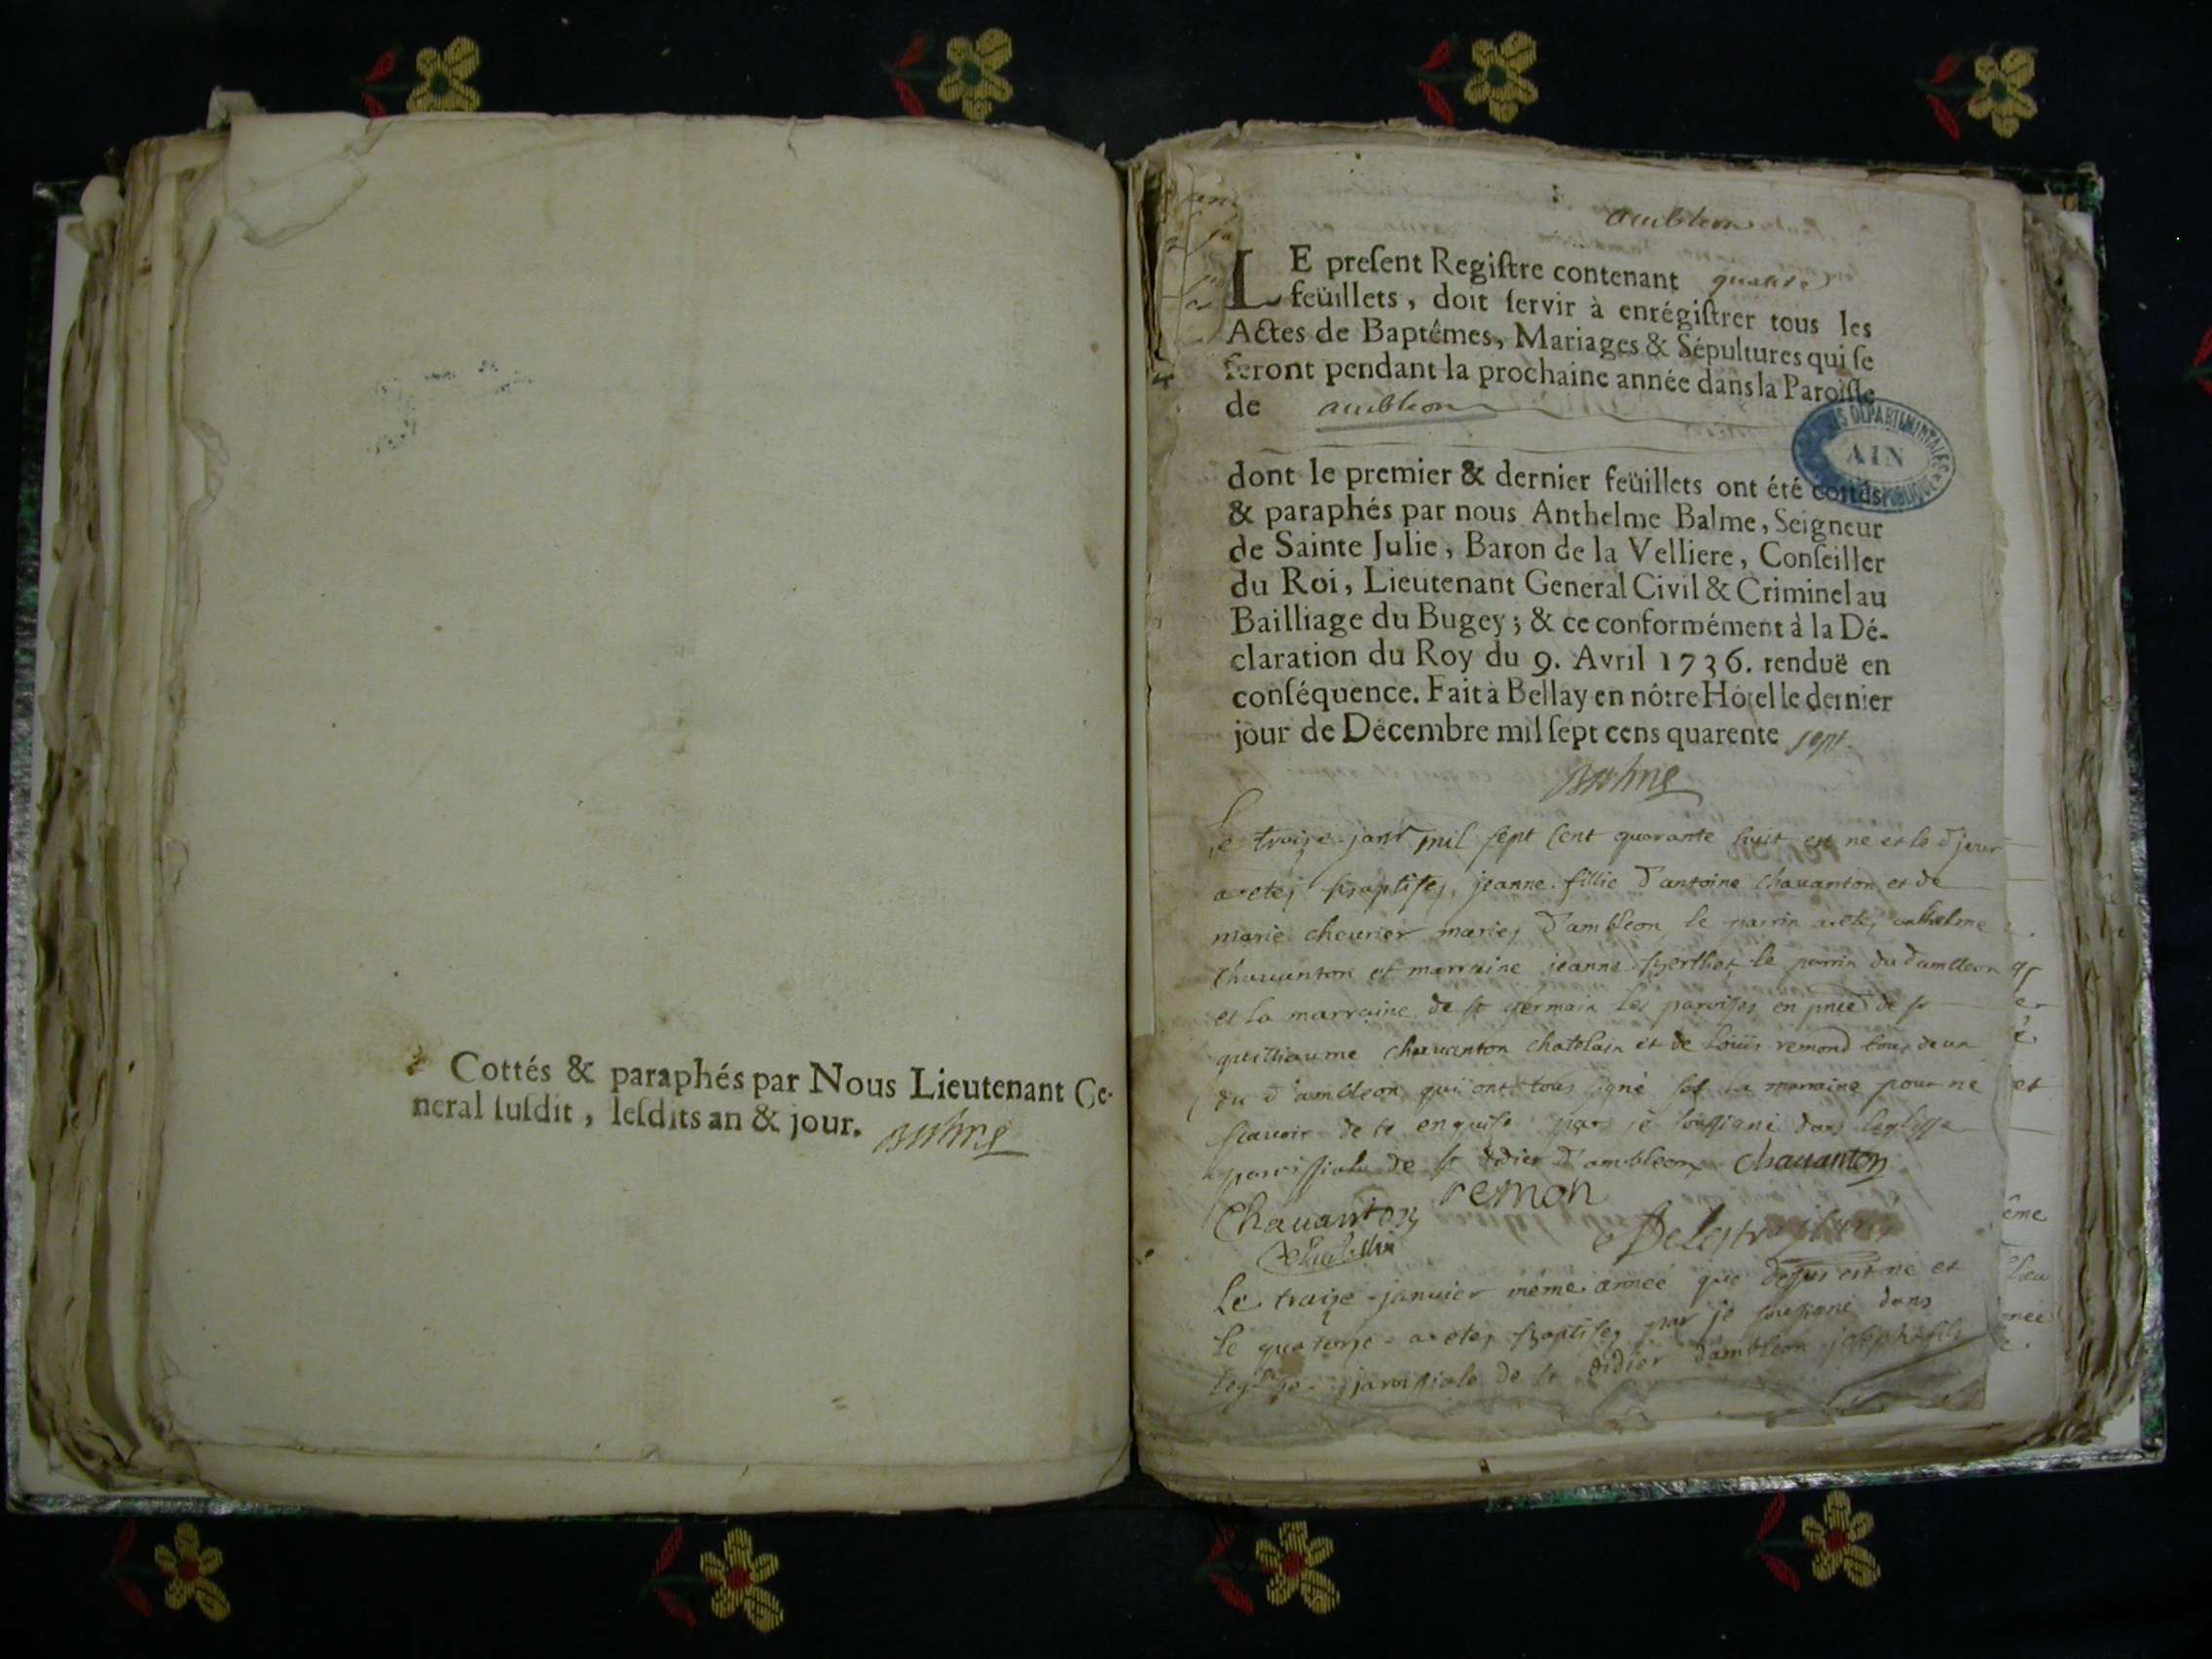 Cottés & paraphés par Nous Lieutenant Ge-
neral susdit, lesdits an & jour.
Balme
ambleon
LE present Registre contenant quatre
feüillets, doit servir à enrégistrer tous les
Actes de Baptêmes, Mariages & Sépultures qui se
feront pendant la prochaine année dans la Paroisse
de ambleon
dont le premier & dernier feüillets ont été cottés
& paraphés par nous Anthelme Balme, Seigneur
de Sainte Julie, Baron de la Velliere, Conseiller
du Roi, Lieutenant General Civil & Criminel au
Bailliage du Bugey; & ce conformément à la Dé-
claration du Roy du 9. Avril 1736. renduë en
conséquence. Fait à Bellay en nôtre Hôtel le dernier
jour de Décembre mil sept cens quarente sept
Balme
AIN
Le traize janr mil sept cent quarante huit est ne et le d jour
a etez baptisez jeanne fillie d'antoine chavanton et de
marie cheurier mariez d'ambleon le parrin a etez anthelme
chavanton et marraine jeanne berthet le parrin du d'ambleon
et la marraine de st germain les paroisses en de sr
guilliaume chavanton chatelain et de loüis remond tous deux
du d'ambleon qui ont tous signé la marraine pour ne
scavoir de ce enquise par je soussigné dans leglisse
parroissiale de st didier d'ambleon chavanton
Chavanton remon
chatellin
Le traize janvier même année que dessus est né et
le quatorze a etez baptisez par je soussigné dans
leglisse parroissiale de st didier d'ambleon joseph fils